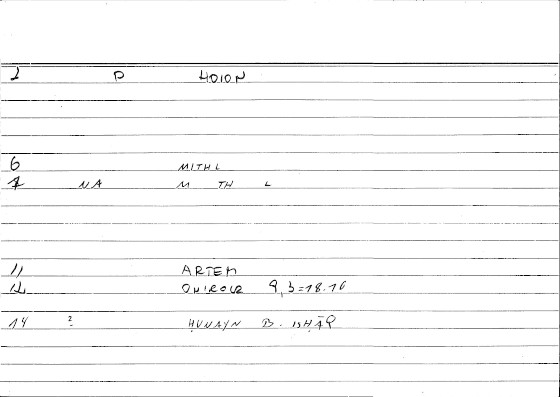 1 D HOION
6 MITHL
7 NA M TH L
11 ARTEM
12 ONIROCR 9,3=18.16
14 ? ḤUNAYN B. ISḤĀQ